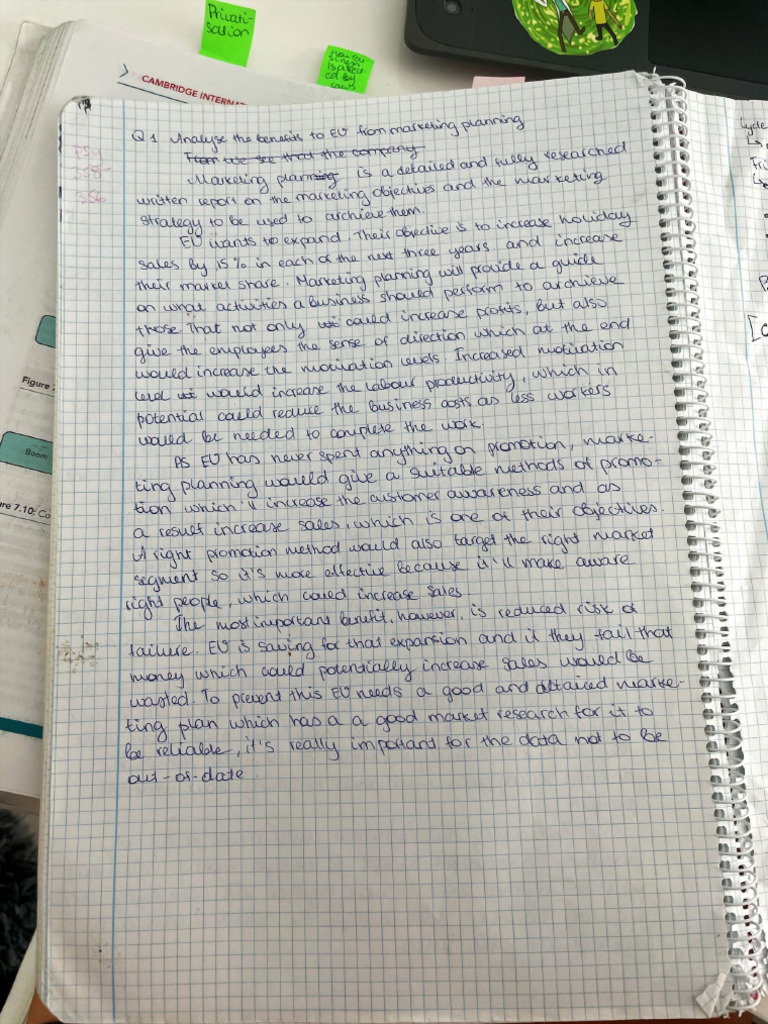 Privati-
sation
CAMBRIDGE INTERNAT
Q1 Analyse the benefits to EU from marketing planning
From we see that the company
Marketing planning is a detailed and fully researched
written report on the marketing objectives and the marketing
strategy to be used to archieve them.
EU wants to expand. Their objective is to increase holiday
sales by 15% in each of the next three years and increase
their market share. Marketing planning will provide a guide
on what activities a business should perform to archieve
those. That not only could increase profits, but also
give the employees the sense of direction which at the end
would increase the motivation levels. Increased motivation
level would increase the labour productivity, which in
potential could reduce the business costs as less workers
would be needed to complete the work.
As EU has never spent anything on promotion, marke-
ting planning would give a suitable methods of promo-
tion which'll increase the customer awareness and as
a result increase sales, which is one of their objectives.
A right promotion method would also target the right market
segment so it's more effective because it'll make aware
right people, which could increase sales.
The most important benefit, however, is reduced risk of
failure. EU is saving for that expansion and if they fail that
money which could potentially increase sales would be
wasted. To prevent this EU needs a good and detailed marke-
ting plan which has a a good market research for it to
be reliable, it's really important for the data not to be
out-of-date.
Figure
Boom
re 7.10: Co
Cycle